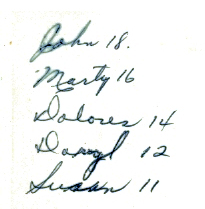 John 18.
Marty 16
Dolores 14
Darryl 12
Susan 11